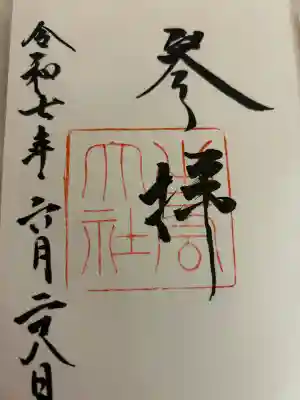 参拝
出雲大社
令和七年六月二十八日